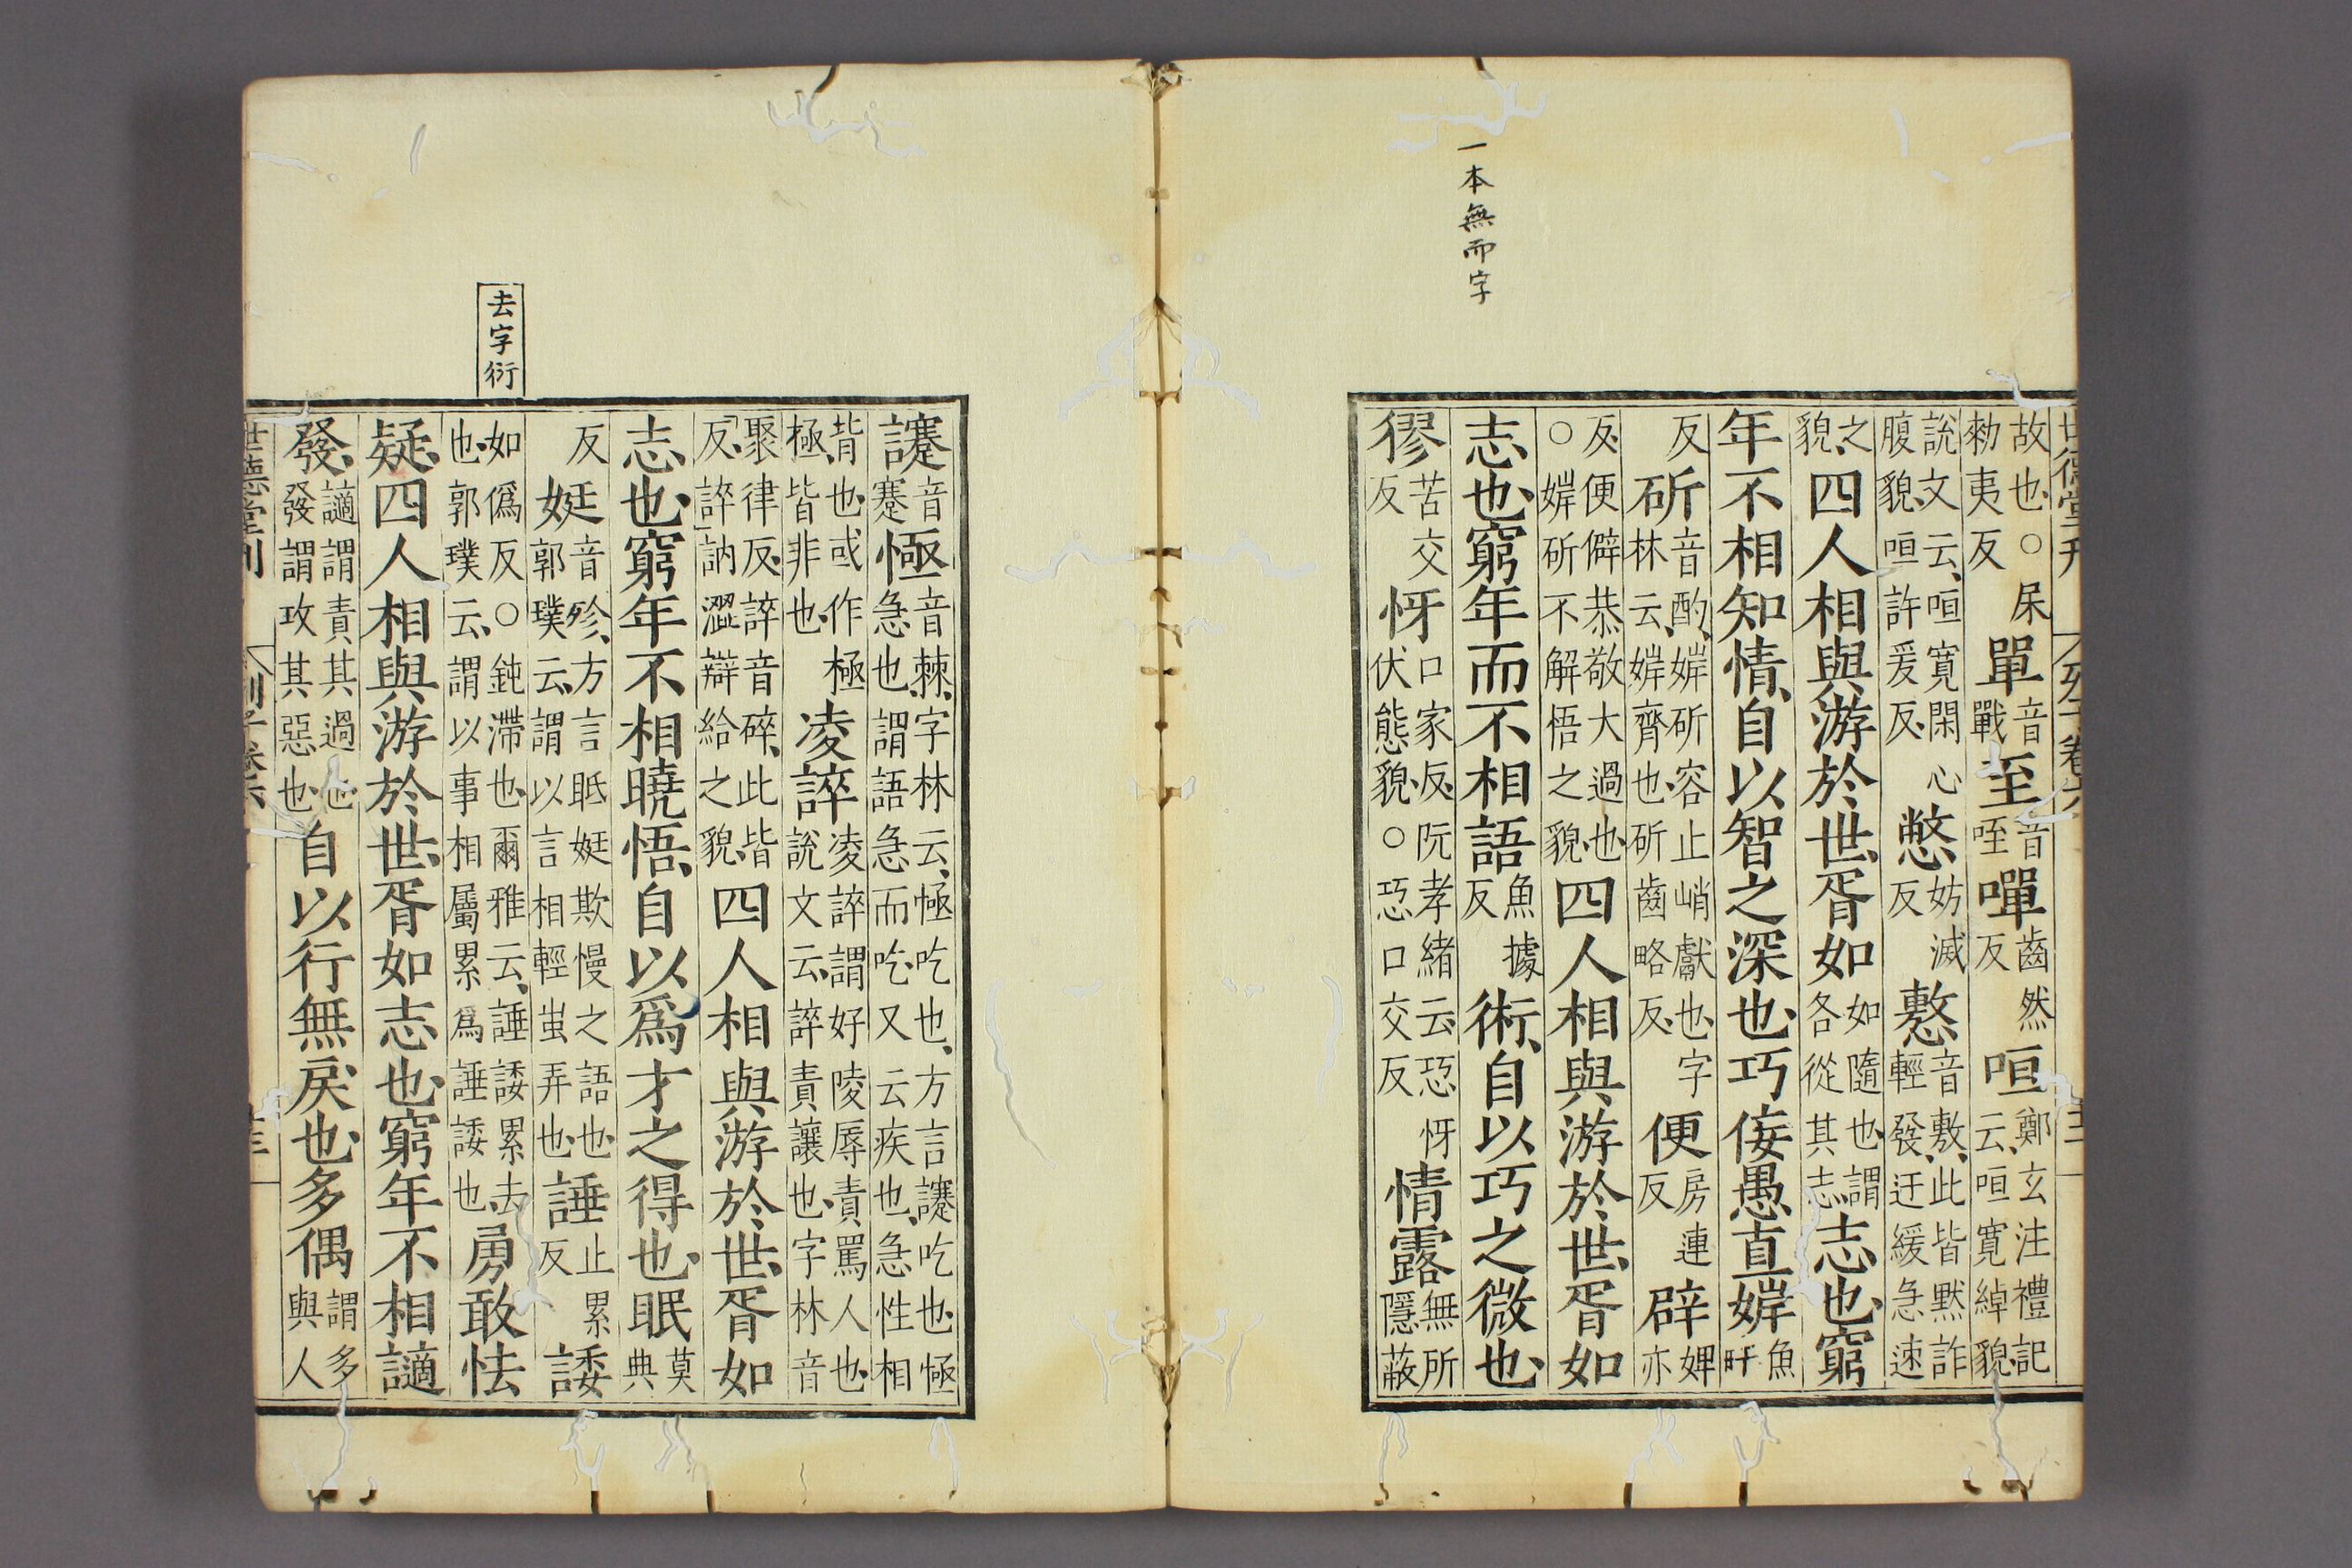 一本無而字
故也○㞐
勑夷反
單音戰至音咥嘽齒然反咺鄭玄注禮記云咺寬綽貌
說文云咺寬閑心腹貌咺許爰反憋妨滅反憨音敷此皆默詐輕發迂緩急速
之貌四人相與游於世胥如如隨也謂各從其志志也窮
年不相知情自以智之深也巧佞愚直婩魚旰
反斫音酌婩斫容止峭巘也字林云婩齊也斫齒略反便房連反辟婢亦
反便僻恭敬大過也○婩斫不解悟之貌四人相與游於世胥如
志也窮年而不相語魚據反術自以巧之微也
㺒苦交反㤉口家反阮孝緒云㤍㤉伏態貌○㤍口交反情露無所隱蔽
去字衍
讓音蹇㥛音棘字林云㥛吃也方言讓吃也㥛急也謂語急而吃又云疾也急性相
背也或作極極皆非也凌誶凌誶謂好陵辱責罵人也說文云誶責讓也字林音
聚律反誶音碎此皆反誶訥澀辯給之貌四人相與游於世胥如
志也窮年不相曉悟自以爲才之得也眠莫典
反娗音殄方言眂娗欺慢之語也郭璞云謂以言相輕蚩弄也諈止累反諉
如僞反○鈍滯也爾雅云諈諉累去也郭璞云謂以事相屬累爲諈諉也勇敢怯
疑四人相與游於世胥如志也窮年不相讁
發讁謂責其過也發謂攻其惡也自以行無戾也多偶謂多與人